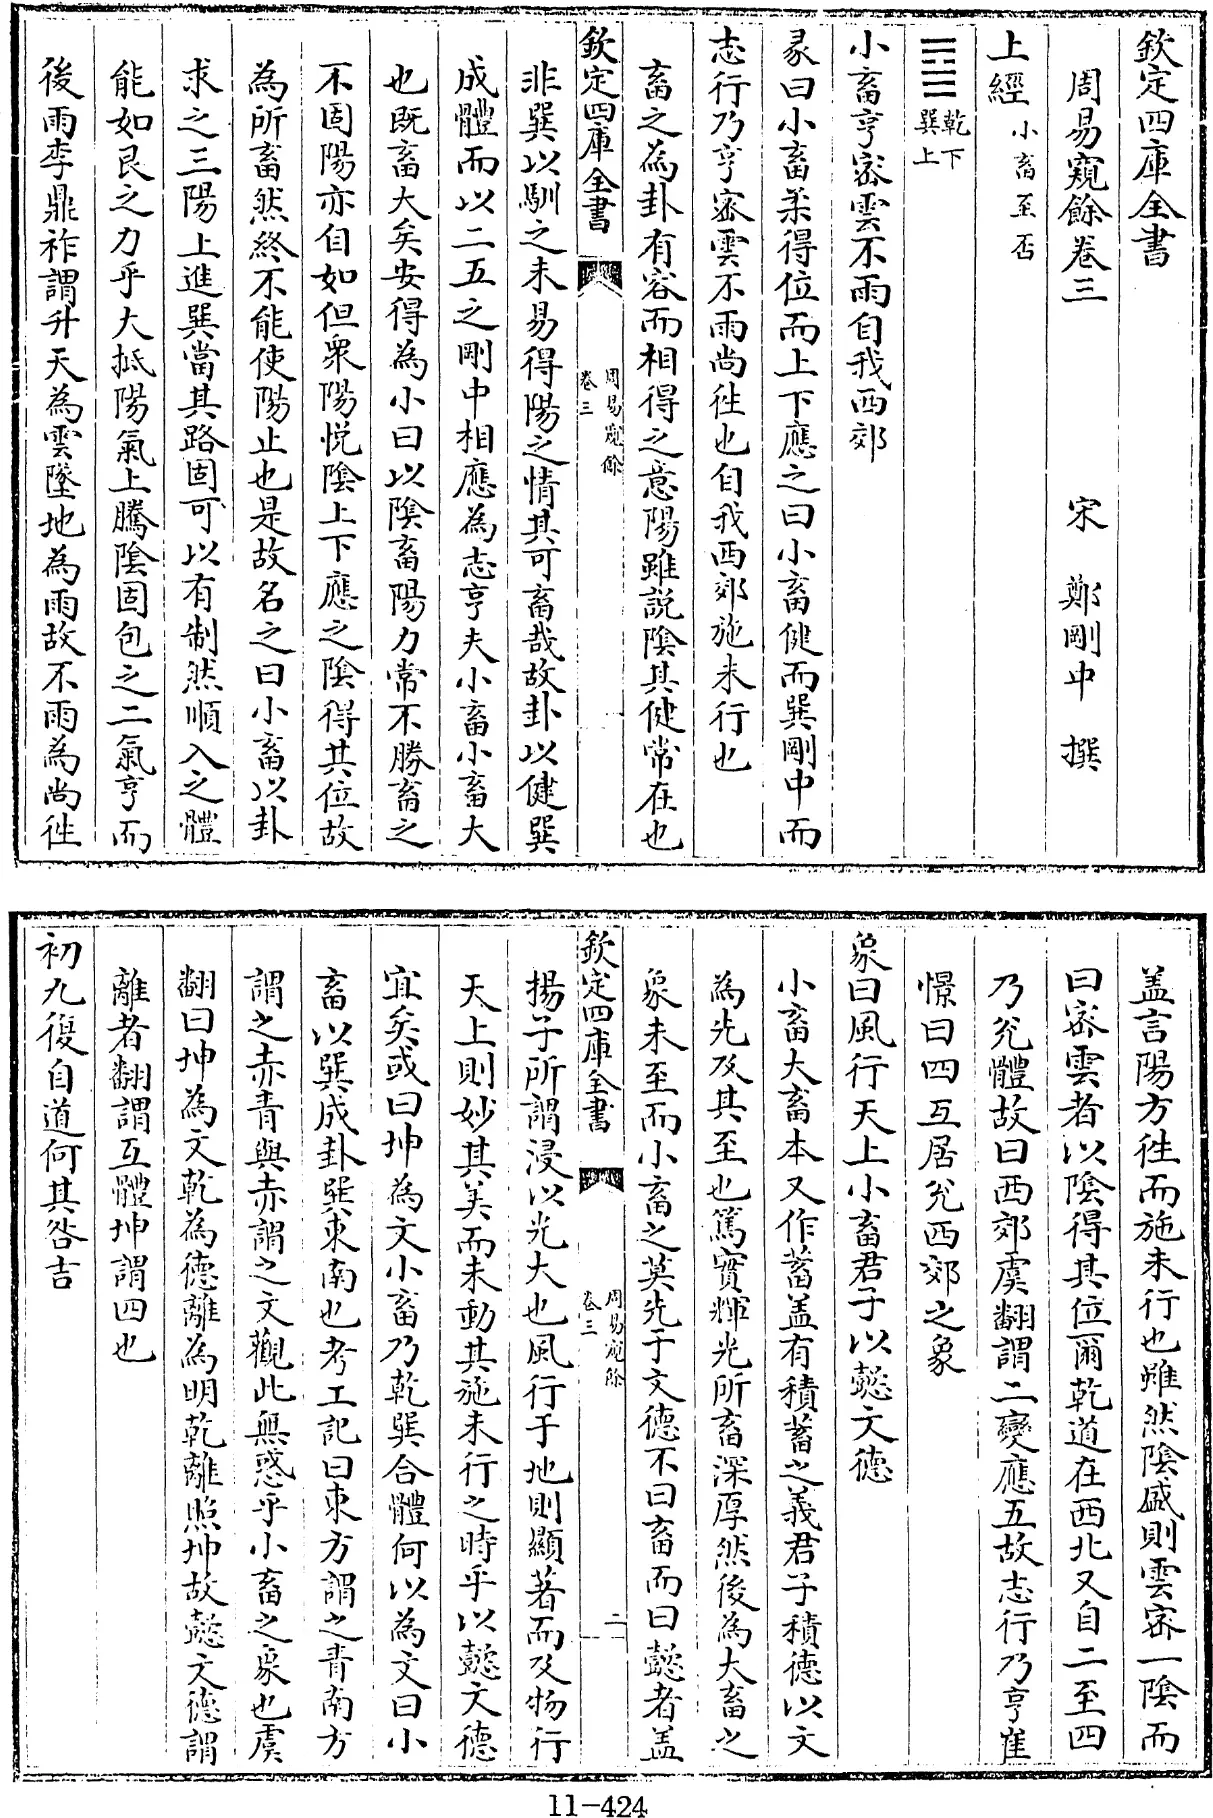 欽定四庫全書
周易窺餘卷三　　　宋　鄭剛中　撰
上經　小畜至否
䷈　乾下
巽上
小畜亨密雲不雨自我西郊
彖曰小畜柔得位而上下應之曰小畜健而巽剛中而
志行乃亨密雲不雨尚往也自我西郊施未行也
畜之為卦有容而相得之意陽雖說陰其健常在也
欽定四庫全書
周易窺餘
卷三
非巽以馴之未易得陽之情其可畜哉故卦以健巽
成體而以二五之剛中相應為志亨夫小畜小畜大
也既畜大矣安得為小曰以陰畜陽力常不勝畜之
不固陽亦自如但衆陽悅陰上下應之陰得其位故
為所畜然終不能使陽止也是故名之曰小畜以卦
求之三陽上進巽當其路固可以有制然順入之體
能如艮之力乎大抵陽氣上騰陰固包之二氣亨而
後雨李鼎祚謂升天為雲墜地為雨故不雨為尚往
盖言陽方往而施未行也雖然陰盛則雲密一陰而
曰密雲者以陰得其位爾乾道在西北又自二至四
乃兊體故曰西郊虞翻謂二變應五故志行乃亨崔
憬曰四互居兊西郊之象
象曰風行天上小畜君子以懿文德
小畜大畜本又作蓄盖有積蓄之義君子積德以文
為先及其至也篤實輝光所畜深厚然後為大畜之
象未至而小畜之莫先于文德不曰畜而曰懿者盖
欽定四庫全書
周易窺餘
卷三
二
揚子所謂浸以光大也風行于地則顯著而及物行
天上則妙其美而未動其施未行之時乎以懿文德
宜矣或曰坤為文小畜乃乾巽合體何以為文曰小
畜以巽成卦巽東南也考工記曰東方謂之青南方
謂之赤青與赤謂之文觀此無惑乎小畜之象也虞
翻曰坤為文乾為德離為明乾離照坤故懿文德謂
離者翻謂互體坤謂四也
初九復自道何其咎吉
11-424